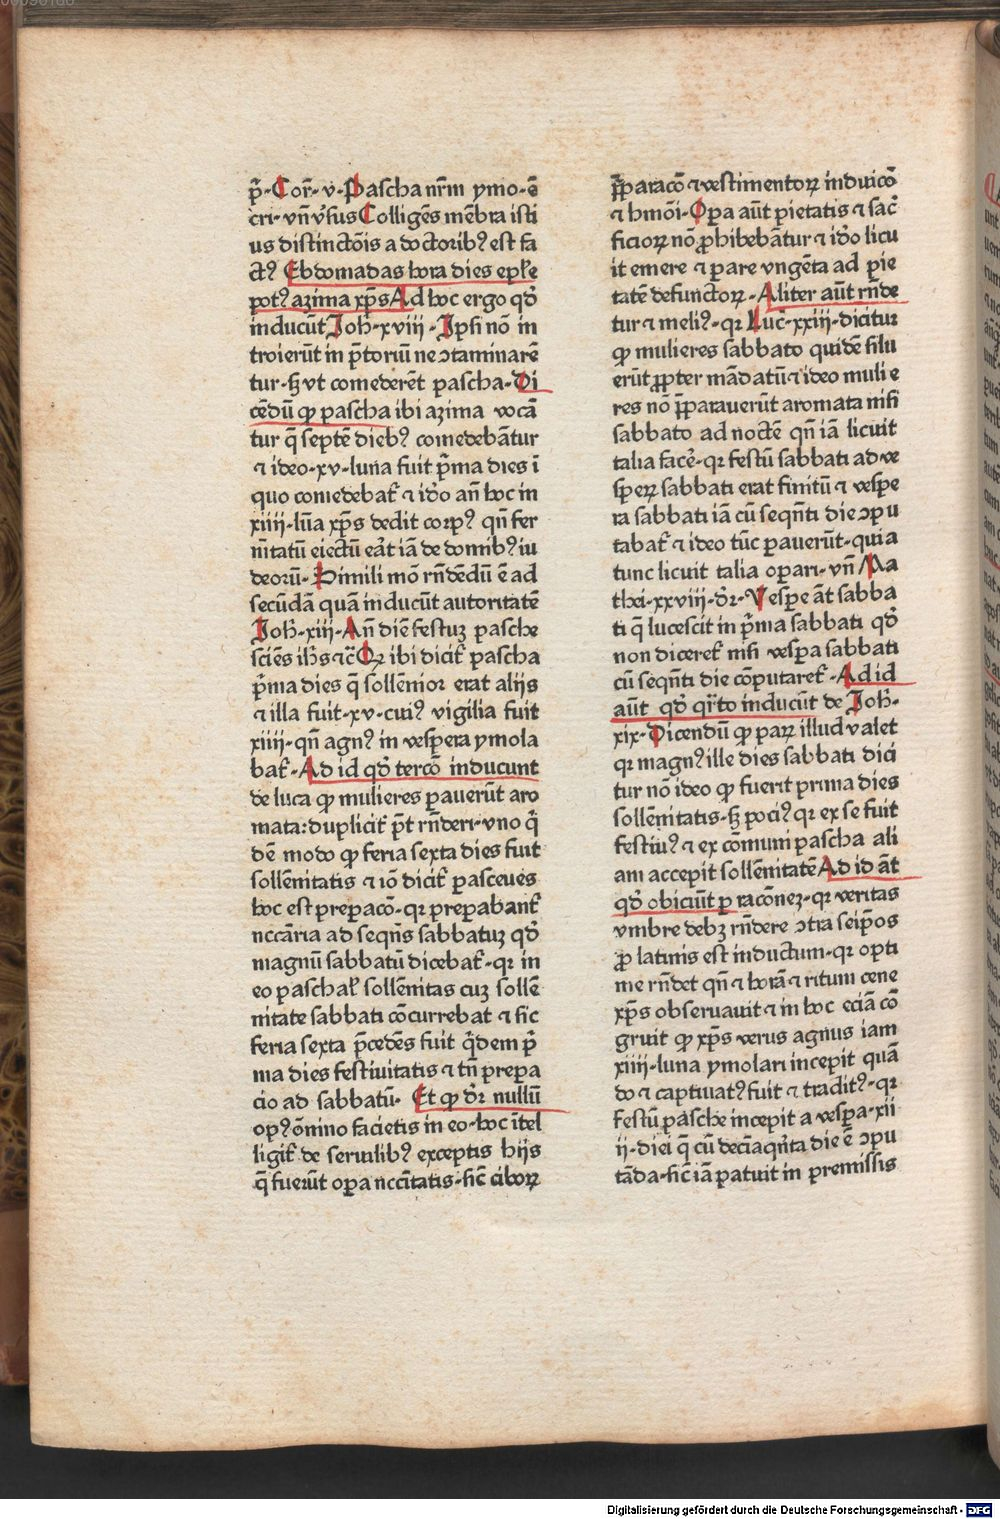 p̄·Cor̄·v·Pascha nr̄m ymo·ē
cri·vn̄ v̄sus Colligēs mēbra isti
us distinctōis a doctoribꝰ est fa
ct9 Ebdomadas hora dies epl̄e
potꝰ azima xp̄s Ad hoc ergo qd̄
inducūt Joh̄·xviij·Ipsi nō in
troierūt in p̄toriū ne ↄtaminarē
tur·ꝫ vt comederēt pascha·Di
cēdū ꝙ pascha ibi azima vocā
tur q̄ septē diebꝰ comedebātur
⁊ ideo·xv·luna fuit p̄ma dies ī
quo comedebat̄ ⁊ id̄o an̄ hoc in
xiiij·lūa xp̄s dedit corpꝰ qn̄ fer
m̄tatū eiectū eāt iā de domibꝰ iu
deorū·Simili mō rn̄dēdū ē ad
secūdā quā inducūt autoritatē
Joh̄·xiij·An̄ diē festuꝫ pasche
sciēs ih̄s ⁊c̄ Qꝛ ibi dicit̄ pascha
p̄ma dies q̄ sollēnior erat alijs
⁊ illa fuit·xv·cuiꝰ vigilia fuit
xiiij·qn̄ agnꝰ in vespera ymola
bat̄·Ad id qd̄ tercō inducunt
de luca ꝙ mulieres pauerūt aro
mata: duplicit̄ pt̄ rn̄deri·vno q̄
dē modo ꝙ feria sexta dies fuit
sollēnitatis ⁊ iō dicit̄ pasceues
hoc est prepacō·qꝛ prepabant̄
nccāria ad seqn̄s sabbatuꝫ qd̄
magnū sabbatū dicebat̄·qꝛ in
eo paschal̄ sollēnitas cuꝫ sollē
nitate sabbati cōcurrebat ⁊ sic
feria sexta p̄cedēs fuit q̄dem p̄
ma dies festiuitatis ⁊ tn̄ prepa
cio ad sabbatū· Et ꝙ dr̄ nullū
opꝰ ōnino facietis in eo·hoc ītel
ligit̄ de seruilibꝰ exceptis hijs
q̄ fuerūt opa nccītatis·sic̄ ciboꝝ
p̄paracō ⁊ vestimentoꝝ induicō
⁊ hmōi·Opa aūt pietatis ⁊ sac̄
ficioꝝ nō ꝓhibebātur ⁊ id̄o licu
it emere ⁊ pare vngēta ad pie
tatē defunctoꝝ·Aliter aūt rn̄de
tur ⁊ meliꝰ·qꝛ Luc̄·xxiij·dicitur
ꝙ mulieres sabbato quidē silu
erūt ꝓpter mādatū ⁊ ideo mulie
res nō p̄parauerūt aromata nisi
sabbato ad noctē qn̄ iā licuit
talia face᷒·qꝛ festū sabbati ad ve
speꝝ sabbati erat finitū ⁊ vespe
ra sabbati iā cū seqn̄ti die ↄpu
tabat̄ ⁊ ideo tūc pauerūt·quia
tunc licuit talia opari·vn̄ Ma
thei·xxviij·dr̄·Vespe āt sabba
ti q̄ lucescit in p̄ma sabbati qd̄
non diceret̄ nisi vespa sabbati
cū seqn̄ti die cōputaret̄·Ad id
aūt qd̄ qr̄to inducūt de Joh̄·
xix·Dicendū ꝙ paꝝ illud valet
qꝛ magnꝰ ille dies sabbati dici
tur nō ideo ꝙ fuerit prima dies
sollēnitatis·ꝫ pociꝰ qꝛ ex se fuit
festiuꝰ ⁊ ex cōmuni pascha ali
am accepit sollēnitatē Ad id āt
qd̄ obiciūt p racōneꝫ·qꝛ veritas
vmbre debꝫ rn̄dere ↄtra seip̄os
ꝓ latinis est inductum·qꝛ opti
me rn̄det qn̄ ⁊ horā ⁊ ritum cene
xp̄s obseruauit ⁊ in hoc eciā cō
gruit ꝙ xp̄s verus agnus iam
xiiij·luna ymolari incepit quā
do ⁊ captiuatꝰ fuit ⁊ traditꝰ·qꝛ
festū pasche incepit a vespa·xii
ij·diei q̄ cū decīaqn̄ta die ē ↄpu
tāda·sic̄ iā patuit in premissis
Digitalisierung gefördert durch die Deutsche Forschungsgemeinschaft - DFG